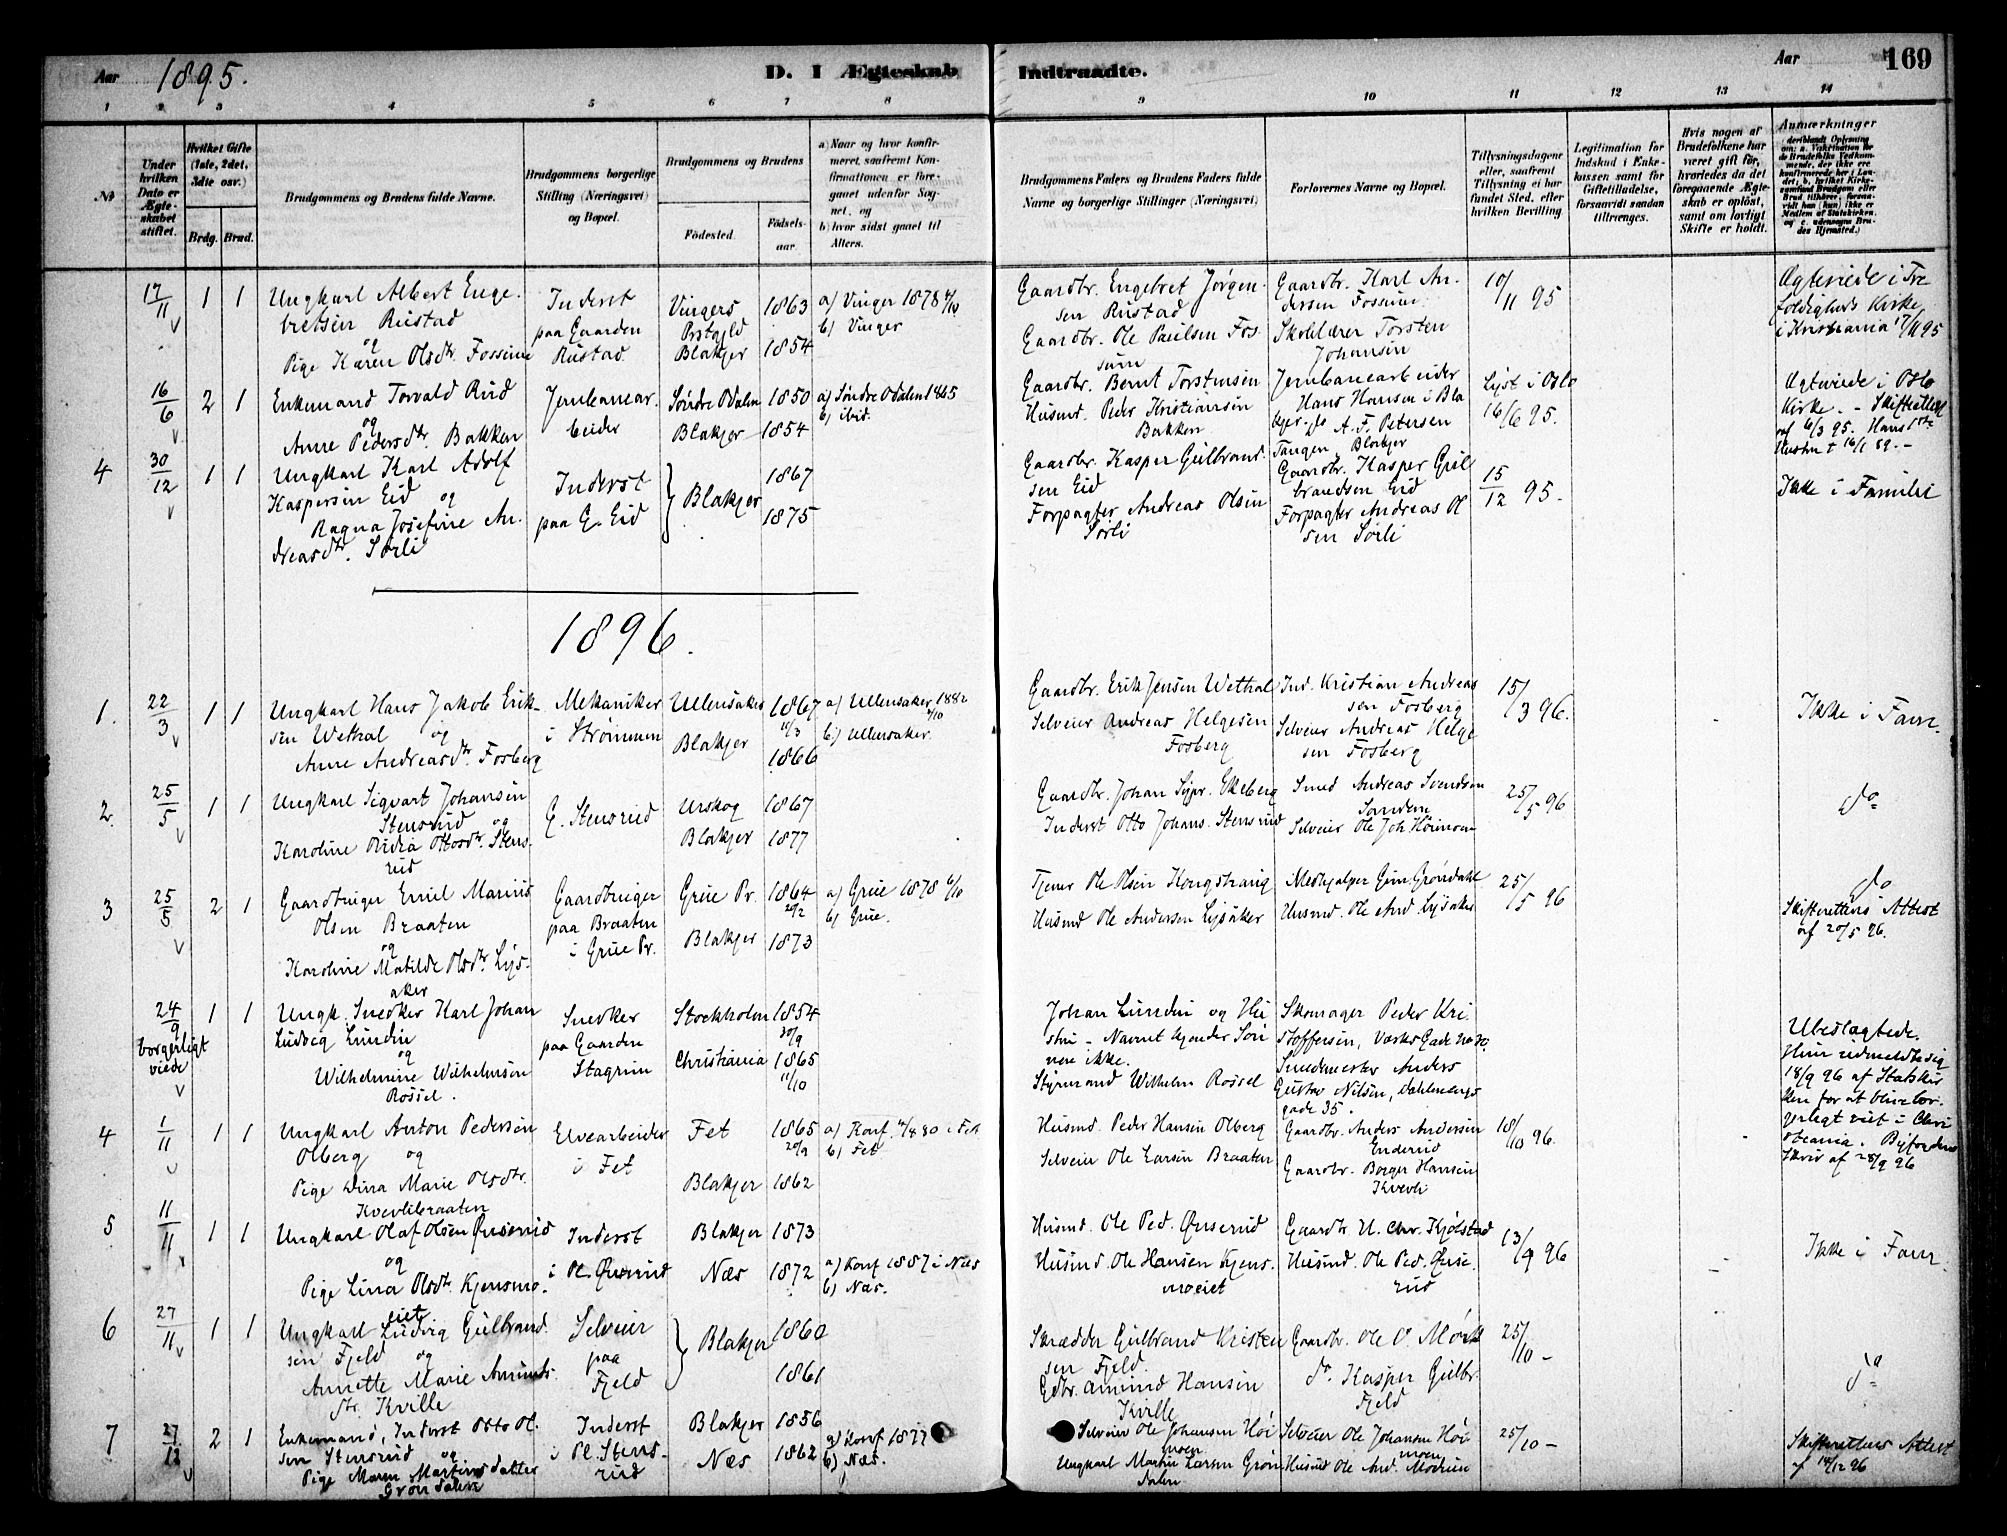 Aar 1895.
D. I Ægteskab Indtraadte.
Aar 169
1 2 3 4 5 6 7 8 9 10 11 12 13 14
№
Under hvilken Dato er Ægteskabet stiftet.
Hvilket Gifte (1ste, 2det, 3die osv.)
Brdg. Brud.
Brudgommens og Brudens fulde Navne.
Brudgommens borgerlige Stilling (Næringsvei) og Bopæl.
Brudgommens og Brudens
Fødested. Fødselsaar.
a) Naar og hvor konfirmeret, saafremt Konfirmationen er foregaaet udenfor Sognet, og
b) hvor sidst gaaet til Alters.
Brudgommens Faders og Brudens Faders fulde Navne og borgerlige Stillinger (Næringsvei)
Forlovernes Navne og Bopæl.
Tillysningsdagene eller, saafremt Tillysning ei har fundet Sted, efter hvilken Bevilling.
Legitimation for Indskud i Enkekassen samt for Giftetilladelse, forsaavidt saadan tiltrænges.
Hvis nogen af Brudefolkene har været gift før, hvorledes da det foregaaende Ægteskab er opløst, samt om lovligt Skifte er holdt.
Anmærkninger
17/11 1 1
Ungkarl Albert Engebretsen Rustad
og
Pige Karen Olsdtr. Fossum
Inderst
paa Gaarden
Rustad
Vingers Prstgjld 1863
Blakjer 1854
a) Vinger 1878 6/10
b) Vinger
Gaardbr. Engebret Jørgensen Rustad
Gaardbr. Ole Paulsen Fossum
Gaardbr. Karl Andersen Fossum
Skolelærer Torsten Johansen
10/11 95
Ægteviede i Trefoldigheds Kirke
i Kristiania 17/11 95
16/6 2 1
Enkemand Torvald Rud
og
Anne Pedersdtr. Bakken
Jernbanearbeider
Søndre Odalen 1850
Blakjer 1854
a) Søndre Odalen 1865
b) ibid.
Gaardbr. Bernt Torstensen
Husmd. Peder Kristiansen Bakken
Jernbanearbeider
Hans Hansen i Blakjer
A. F. Petersen
Tangen, Blakjer
Lyst i Oslo
16/6 95.
Ægteviede i Oslo
Kirke. - Skifteattest
af 6/3 95. Hans 1ste
Hustru † 16/1 89. -
4 30/12 1 1
Ungkarl Karl Adolf
Kaspersen Eid og
Ragna Josefine Andreasdtr. Sørli
Inderst
paa G. Eid
Blakjer
1867
1875
Gaardbr. Kasper Gulbrandsen Eid
Forpagter Andreas Olsen
Sørli
Gaardbr. Kasper Gulbrandsen Eid
Forpagter Andreas Olsen Sørli
15/12 95.
Ikke i Familie
1896.
1. 22/3 1 1
Ungkarl Hans Jakob Eriksen Wethal og
Anne Andreasdtr. Fosberg
Mekaniker
i Strømmen
Ullensaker 1867 11/3
Blakjer 1866
a) Ullensaker 1882 8/10
b) Ullensaker.
Gaardbr. Erik Jensen Wethal
Selveier Andreas Helgesen
Fosberg
Ind. Kristian Andreassen Fosberg
Selveier Andreas Helgesen Fosberg
15/3 96.
Ikke i Fam.
2. 25/5 1 1
Ungkarl Sigvart Johansen
Stensrud og
Karoline Otidia Ottosdtr. Stensrud
G. Stensrud
Urskog 1867
Blakjer 1877
Gaardbr. Johan Sijver. Ekeberg
Inderst Otto Johans. Stensrud
Smed Andreas Svendsen
Sanden
Selveier Ole Joh. Høimoen
25/5 96
do
3 25/5 2 1
Gaardbruger Emil Marius
Olsen Braaten
og
Karoline Matilde Olsdtr. Lysaker
Gaardbruger
paa Braaten
i Grue Pr.
Grue Pr. 1864 24/2
Blakjer 1873
a) Grue 1878 6/10
b) Grue.
Tjener Ole Olsen Kongshaug
Husmd Ole Andersen Lysaker
Medhjælper Grøndahl
Husmd. Ole And. Lysaker
25/5 96
do
Skifterettens Attest
af 20/5 96.
24/9 borgerligt viede 1 1
Ungk. Snedker Karl Johan
Ludvig Lundin
og
Wilhelmine Wilhelmsen
Rossel.
Snedker
paa Gaarden
Stagrim
Stockholm 1854 30/9
Christiania 1865 11/10
Johan Lundin og Hustru - Navnet kjender Sønnen ikke.
Styrmand Wilhelm Rossel
Skomager Peder Kristoffersen, Værksgade No 30.
Snedmester Anders
Gustav Nilsen, Dahlenengsgade 35.
Ubeslægtede.
Hun udmeldte sig
18/9 96 af Statskirken for at blive borgerligt viet i Christiania. Byfogdens
Skriv. af 28/9 96
4 1/11 1 1
Ungkarl Anton Pedersen
Olberg og
Pige Lina Marie Olsdtr.
Kvevlibraaten
Elvearbeider
i Fet
Fet 1865 20/9
Blakjer 1862
a) Konf. 4/4 80 i Fet
b) Fet
Husmd. Peder Hansen Olberg
Selveier Ole Larsen Braaten
Gaardbr. Anders Andersen
Enderud
Gaardbr. Borger Hansen
Kvevli
18/10 96.
5 11/11 1 1
Ungkarl Olaf Olsen Qurserud
og
Pige Lina Olsdtr. Kjensmoeiet
Inderst
i Pl. Qurserud
Blakjer 1873
Næs 1872
a) Konf 1887 i Næs
b) Næs.
Husmd. Ole Ped. Qurserud
Husmd. Ole Hansen Kjensmoeiet
Gaardbr. H. Chr. Kjølstad
Husmd. Ole Ped. Qurserud
13/9 96
Ikke i Fam.
6 27/11 1 1
Ungkarl Ludvig Gulbrandsen Fjeld og
Annette Marie Amundsdtr. Kville
Selveier
paa
Fjeld
Blakjer
1860
1861
Skrædder Gulbrand Kristensen Fjeld.
Gdbr. Amund Hansen
Kville
Gaardbr. Ole O. Mørk
do. Kasper Gulbr.
Fjeld
25/10 -
do
7 27/12 2 1
Enkemand, Inderst Otto Olsen Stensrud og
Pige Maren Martinsdatter
Grøndalen
Inderst
i Pl. Stensrud
Blakjer 1856
Næs 1862
a) Konf 1877
b) Næs.
Selveier Ole Johansen Høimoen
Ungkarl Martin Larsen Grøndalen
Selveier Ole Johansen Høimoen
Husmd Ole And.
25/10 -
Skifterettens Attest
af 14/12 96